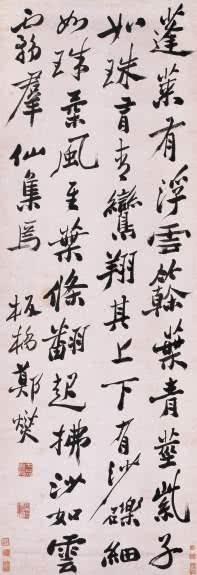 蓬萊有浮雲簳葉青莖紫子
如珠有青鸞翔其上下有沙礫細
如珠柔風至葉條翻起拂沙如雲
霧羣仙集焉
板橋鄭燮